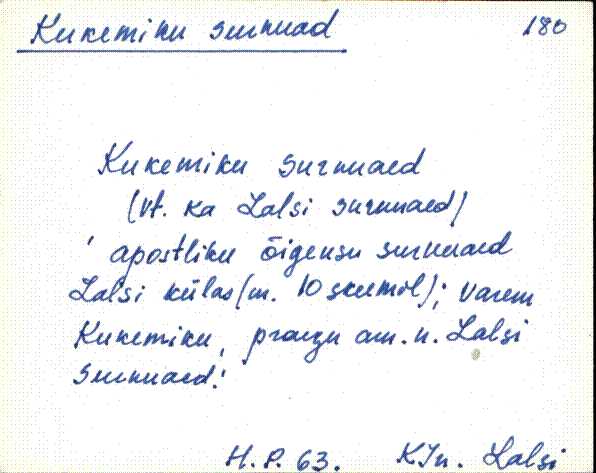 Kukemiku surnuad 180
Kukemiku surnuaed
(vt. ka Lalsi surnuaed)
' apostliku õigeusu surnuaed
Lalsi külas (m. 10 skeemil); varem
Kukemiku, praegu am. n. Lalsi
surnuaed.'
H.P. 63. KJn. Lalsi